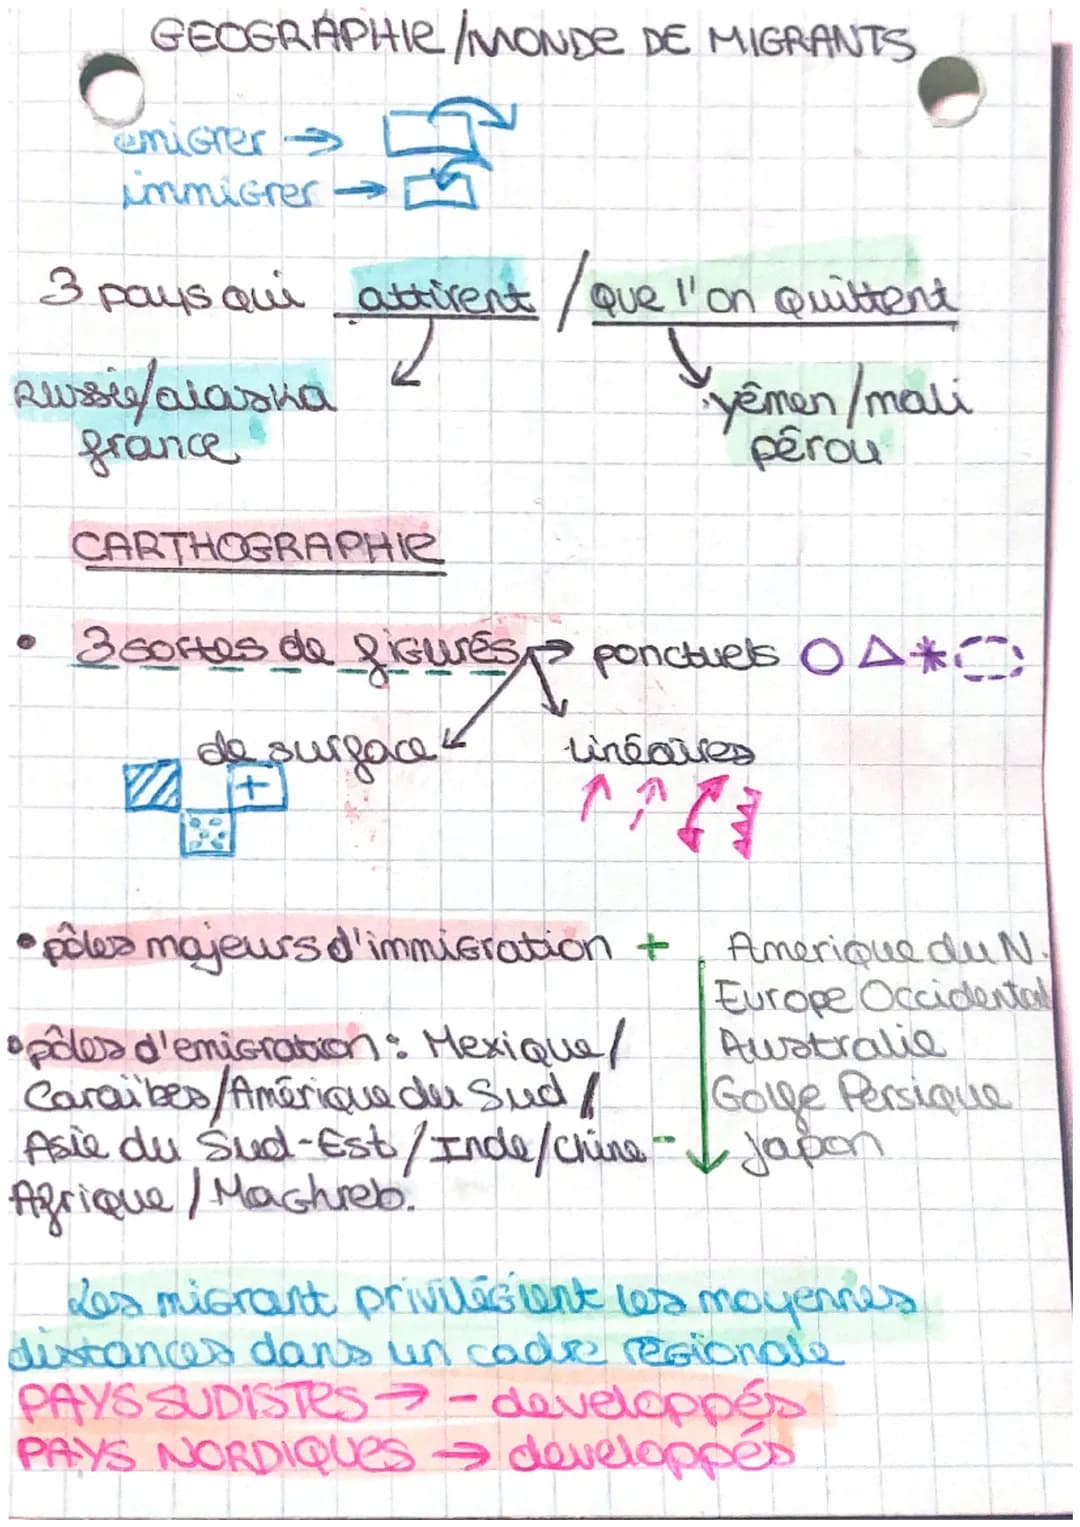 GEOGRAPHIE/MONDE DE MIGRANTS
emigrer →
immigrer →
3 pays qui attirent / que l'on quittent
Russie/alaska
france
yêmen/mali
pérou
CARTHOGRAPHIE
• 3 sortes de figurés → ponctuels
de surface linéaires
+
• pôles majeurs d'immigration + Amerique du N.
Europe Occidental
• pôles d'emigration : Mexique/ Australie
Caraïbes/Amérique du Sud / Golfe Persique
Asie du Sud-Est/Inde/Chine - Japon
Afrique/Maghreb.
Les migrant privilégient les moyennes
distances dans un cadre régionale
PAYS SUDISTES → - developpés
PAYS NORDIQUES → developpés